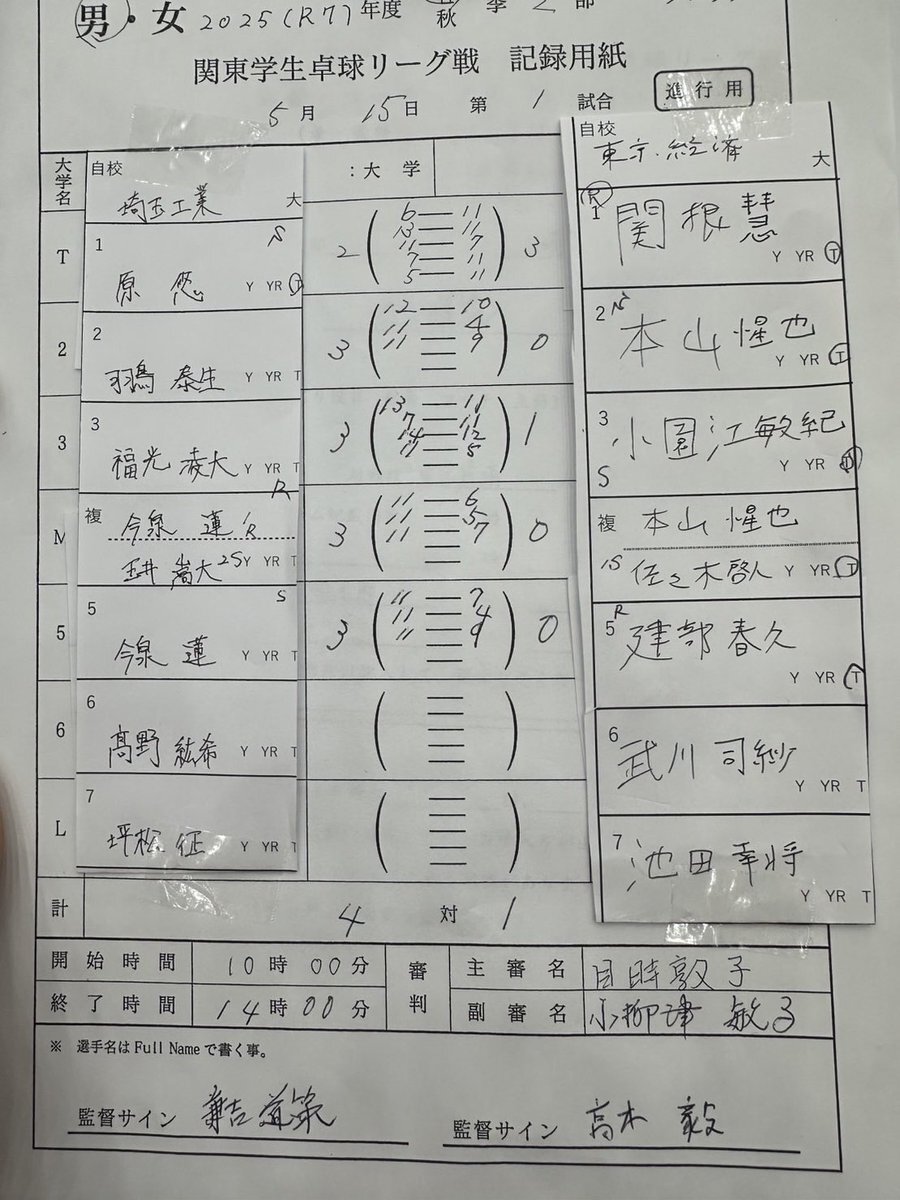 男・女 2025(R7)年度 秋 季 2 部
関東学生卓球リーグ戦 記録用紙
5月 15日 第 1 試合 進行用
大学名 自校 埼玉工業 大 :大学 自校 東京経済 大
T 1 原 悠 S Y YR T 2 ( ) 3 R 1 関根 慧 Y YR T
6 — 11
13 — 11
11 — 7
7 — 11
5 — 11
2 2 羽鳥 泰生 Y YR T 3 ( ) 0 2 N 本山 惺也 Y YR T
12 — 10
11 — 4
11 — 9
3 3 福光 凌大 Y YR T R 3 ( ) 1 3 S 小園江 敏紀 Y YR T
13 — 11
7 — 11
14 — 12
11 — 5
M 複 今泉 蓮 1R 3 ( ) 0 複 本山 惺也
玉井 嵩大 2S Y YR T 1S 佐々木 啓人 Y YR T
11 — 6
11 — 5
11 — 7
5 5 今泉 蓮 S Y YR T 3 ( ) 0 5 R 建部 春久 Y YR T
11 — 7
11 — 4
11 — 9
6 6 髙野 紘希 Y YR T ( ) 6 武川 司紗 Y YR T
L 7 坪松 征 Y YR T ( ) 7 池田 幸将 Y YR T
計 4 対 1
開始時間 10時 00分 審判 主審名 目時 敦子
終了時間 14時 00分 副審名 小柳津 敏子
※ 選手名は Full Name で書く事。
監督サイン 監督サイン 高木 毅